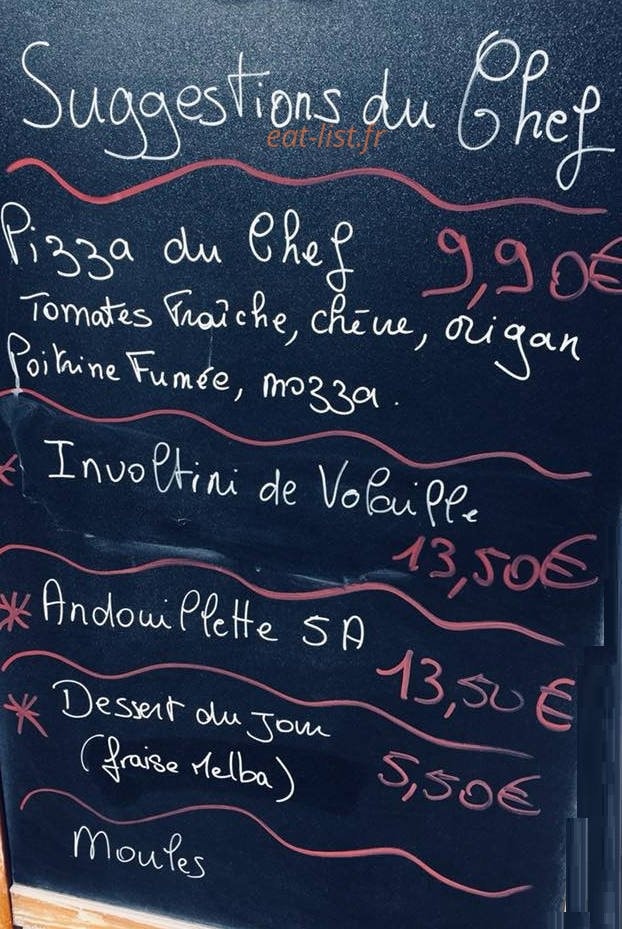 Suggestions du Chef
eat-list.fr
Pizza du Chef 9,90€
Tomates Fraîche, chèvre, origan
Poitrine Fumée, mozza.
Involtini de Volaille
13,50€
* Andouillette 5A
13,50€
* Dessert du jour
(fraise Melba) 5,50€
Moules